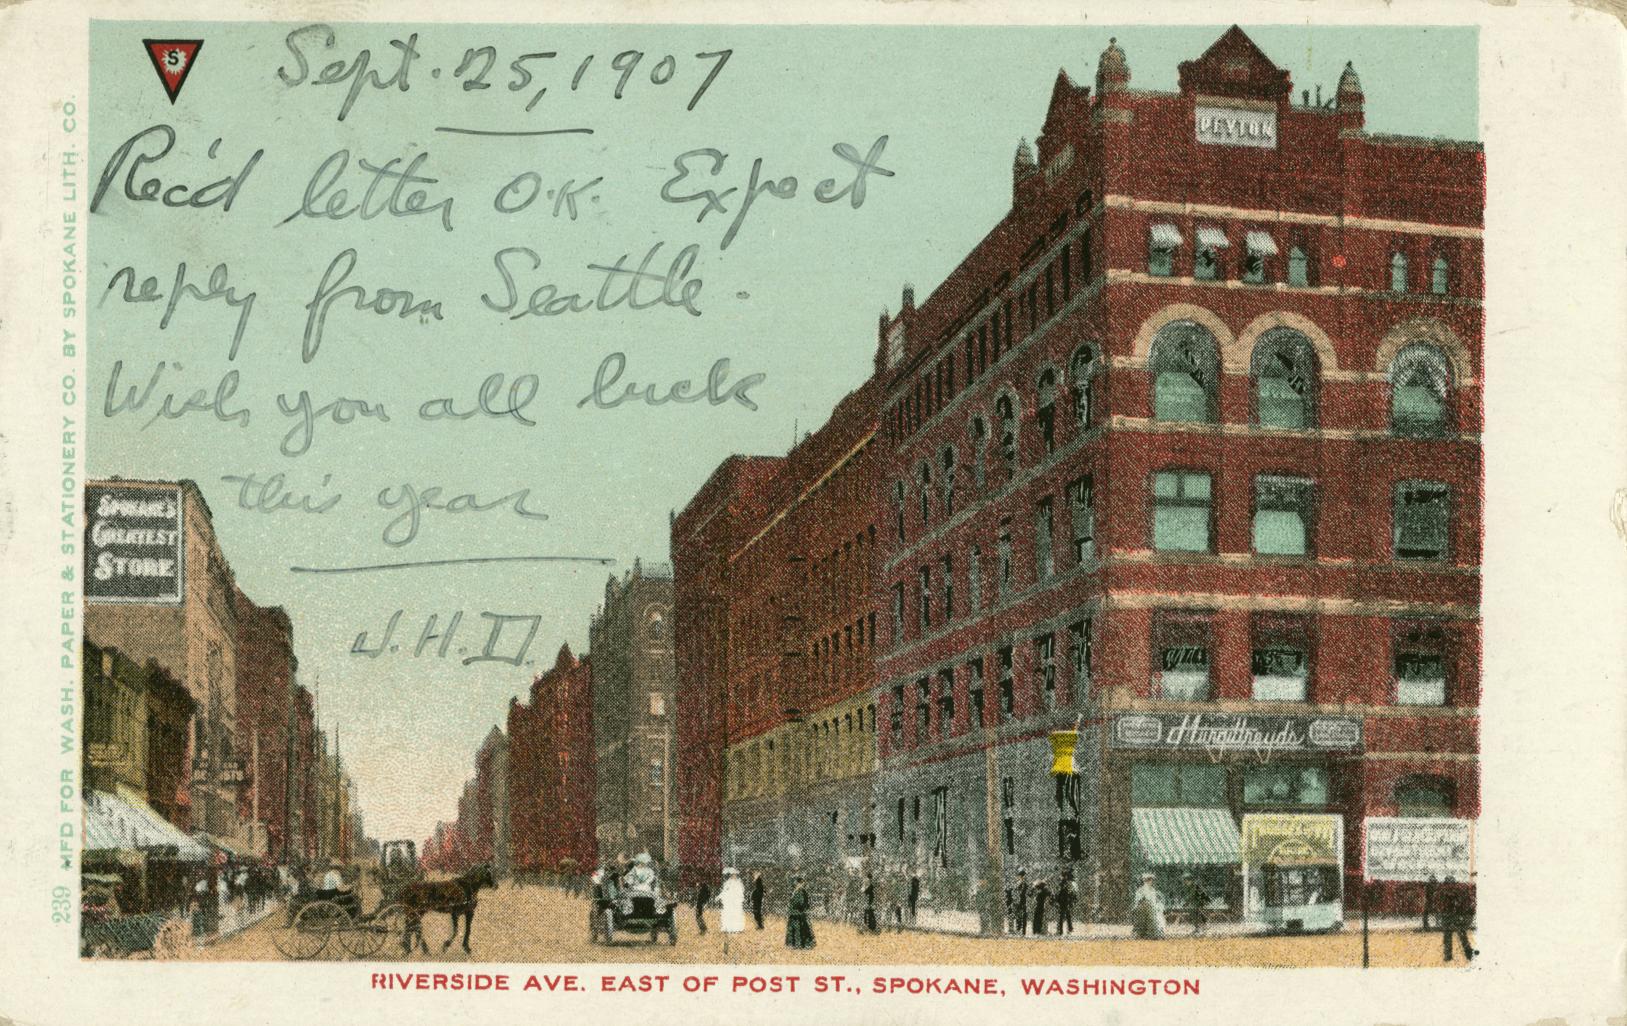 S
Sept. 25, 1907
Rec'd letter O.K. Expect
reply from Seattle.
Wish you all luck
this year
J.H.D.
PEYTON
SPOKANE'S
GREATEST
STORE
MFD FOR WASH. PAPER & STATIONERY CO. BY SPOKANE LITH. CO.
239
RIVERSIDE AVE. EAST OF POST ST., SPOKANE, WASHINGTON